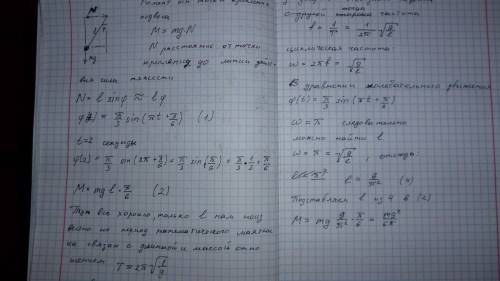 N
mg
M = mg·N
N расстояние от точки
крепления до линии дейс
вия силы тяжести
N = l sinφ ≈ lφ
φ(t) = π/3 sin(πt + π/6) (1)
t=2 секунды
φ(2) = π/3 sin(2π + π/6) = π/3 sin(π/6) = π/3 · 1/2 = π/6
M = mg l · π/6 (2)
все хорошо, только l нам неиз
вестно но период математического маятни
ка связан с длинной и массой отно
шением T = 2π√(l/g)
с другой стороны частота
ν = 1/T = 1/2π √(g/l)
циклическая частота
ω = 2πν = √(g/l)
В уравнении колебательного движения
φ(t) = π/3 sin(πt + π/6)
ω = π следовательно
можно найти l
ω = π = √(g/l), отсюда
l = g/π² (4)
Подставляем из 4 в (2)
M = mg g/π² · π/6 = mg²/6π